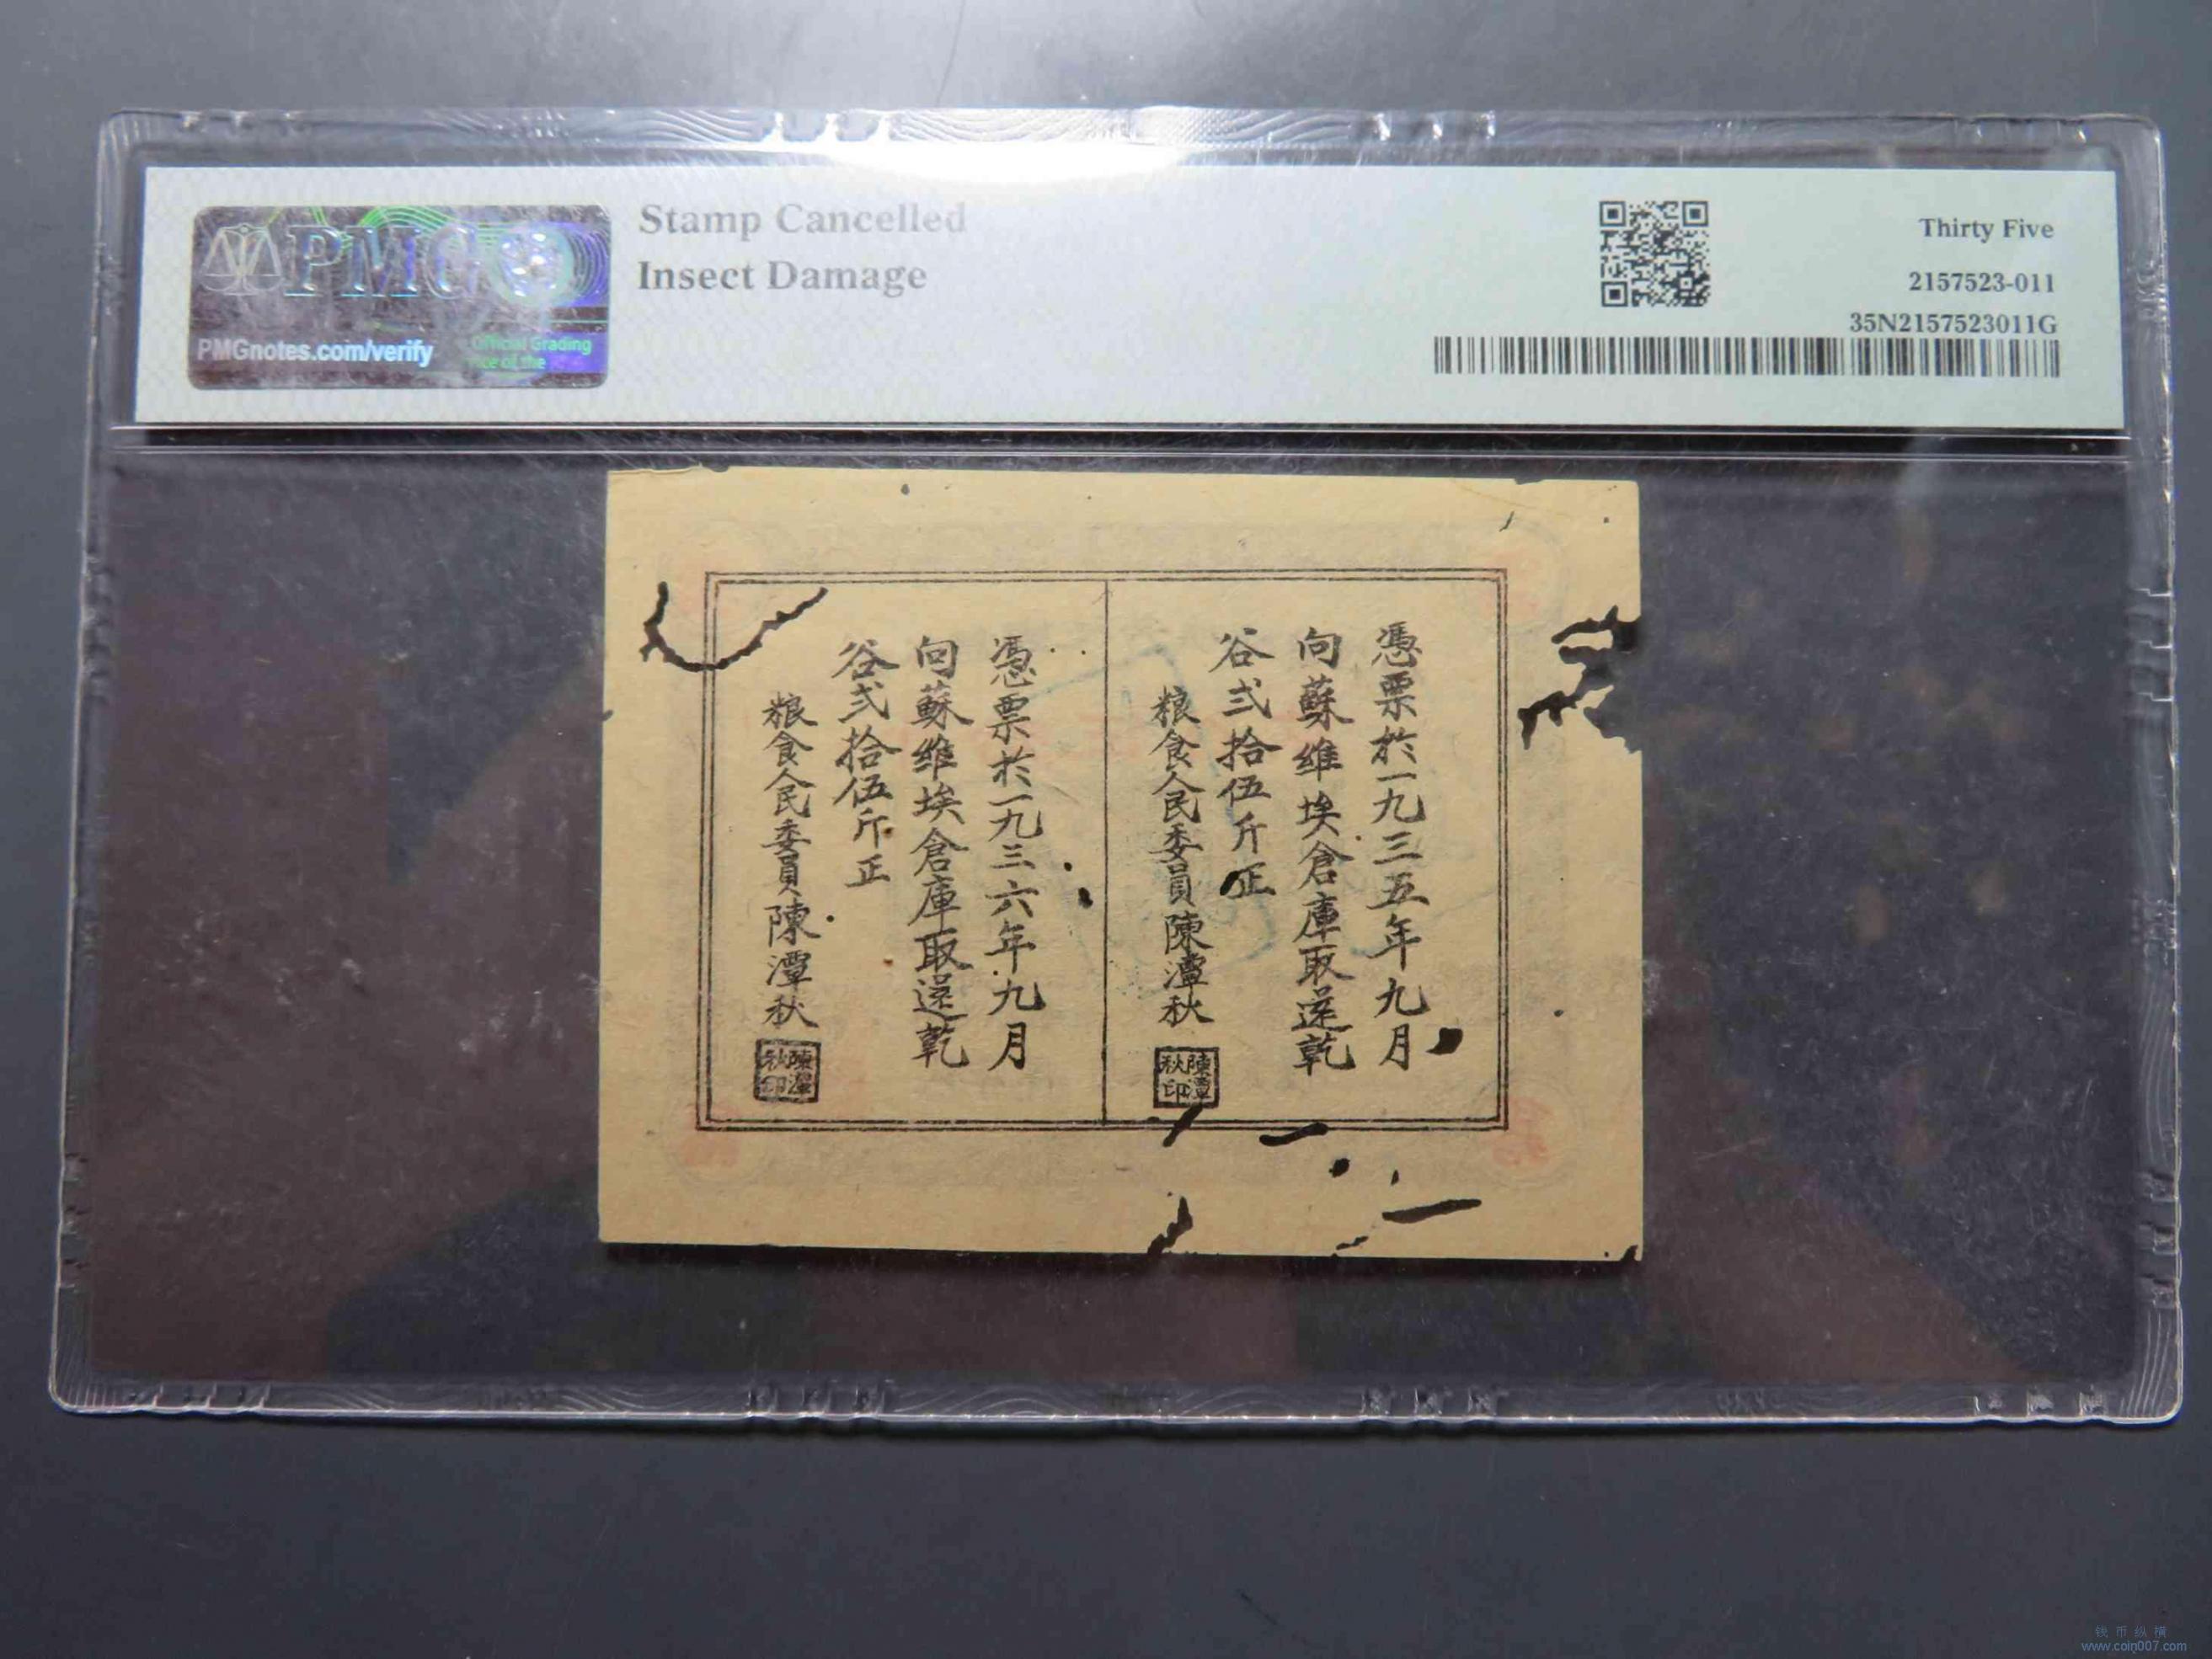 PMG
PMGnotes.com/verify
Official Grading
Stamp Cancelled
Insect Damage
Thirty Five
2157523-011
35N2157523011G
憑票於一九三五年九月
向蘇維埃倉庫取还乾
谷弍拾伍斤正
粮食人民委員陳潭秋
陳潭
秋印
憑票於一九三六年九月
向蘇維埃倉庫取还乾
谷弍拾伍斤正
粮食人民委員陳潭秋
陳潭
秋印
钱币纵横
www.coin007.com